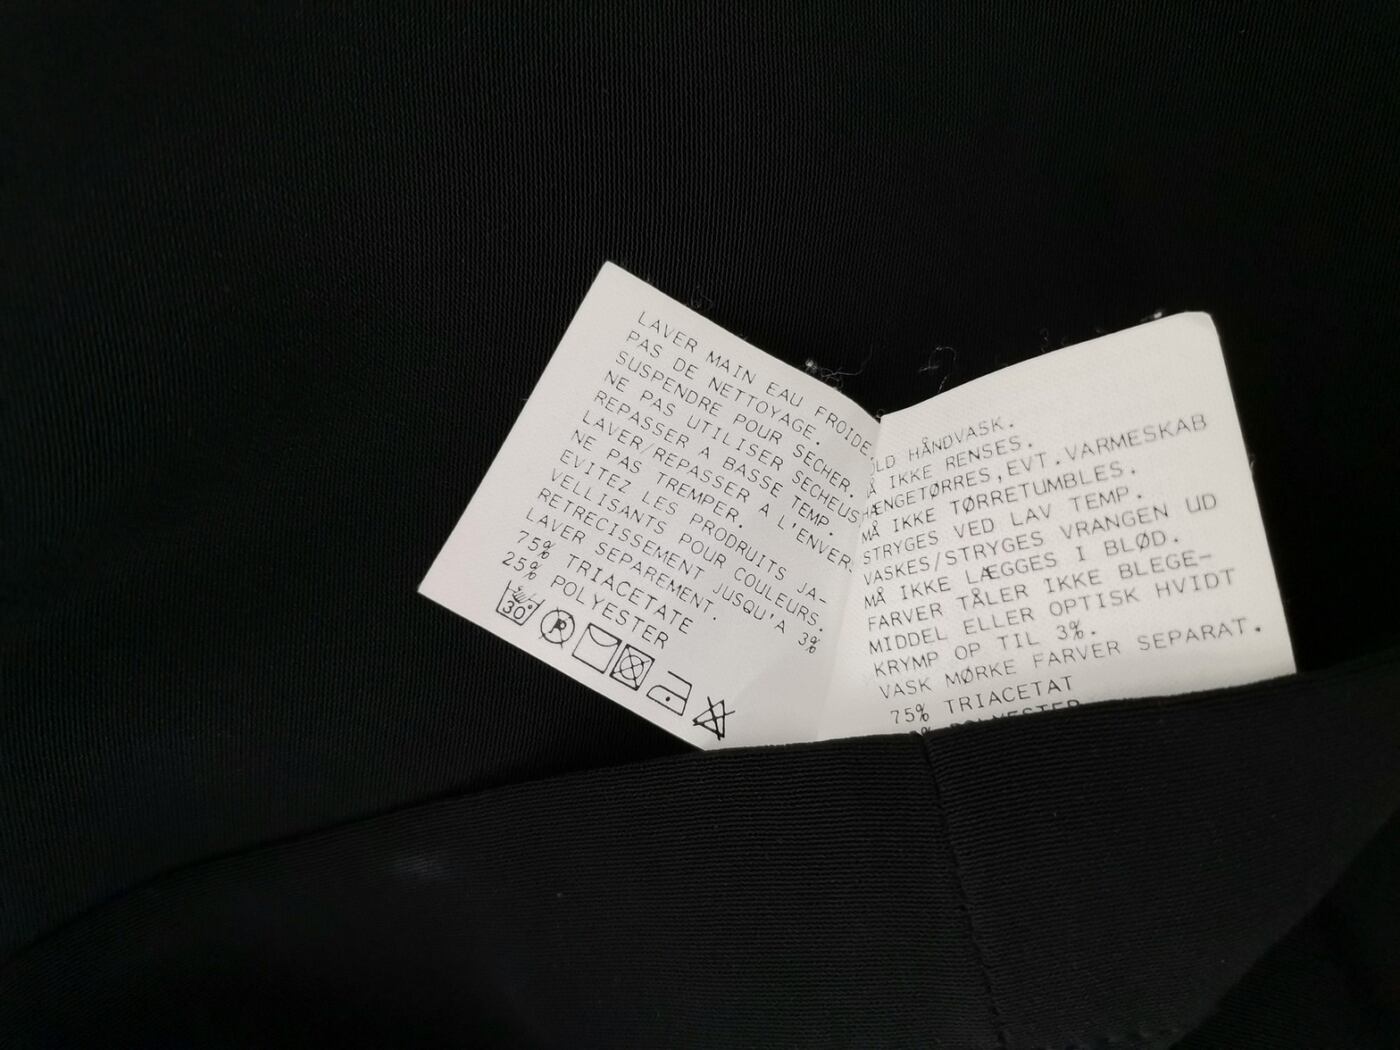 LAVER MAIN EAU FROIDE.
PAS DE NETTOYAGE.
SUSPENDRE POUR SECHER.
NE PAS UTILISER SECHEUS
REPASSER A BASSE TEMP.
LAVER/REPASSER A L'ENVER
NE PAS TREMPER.
EVITEZ LES PRODRUITS JA-
VELLISANTS POUR COULEURS.
RETRECISSEMENT JUSQU'A 3%
LAVER SEPAREMENT.
75% TRIACETATE
25% POLYESTER
30 P
HÅNDVASK.
IKKE RENSES.
HÆNGETØRRES,EVT.VARMESKAB
MÅ IKKE TØRRETUMBLES.
STRYGES VED LAV TEMP.
VASKES/STRYGES VRANGEN UD
MÅ IKKE LÆGGES I BLØD.
FARVER TÅLER IKKE BLEGE-
MIDDEL ELLER OPTISK HVIDT
KRYMP OP TIL 3%.
VASK MØRKE FARVER SEPARAT.
75% TRIACETAT
% POLYESTER